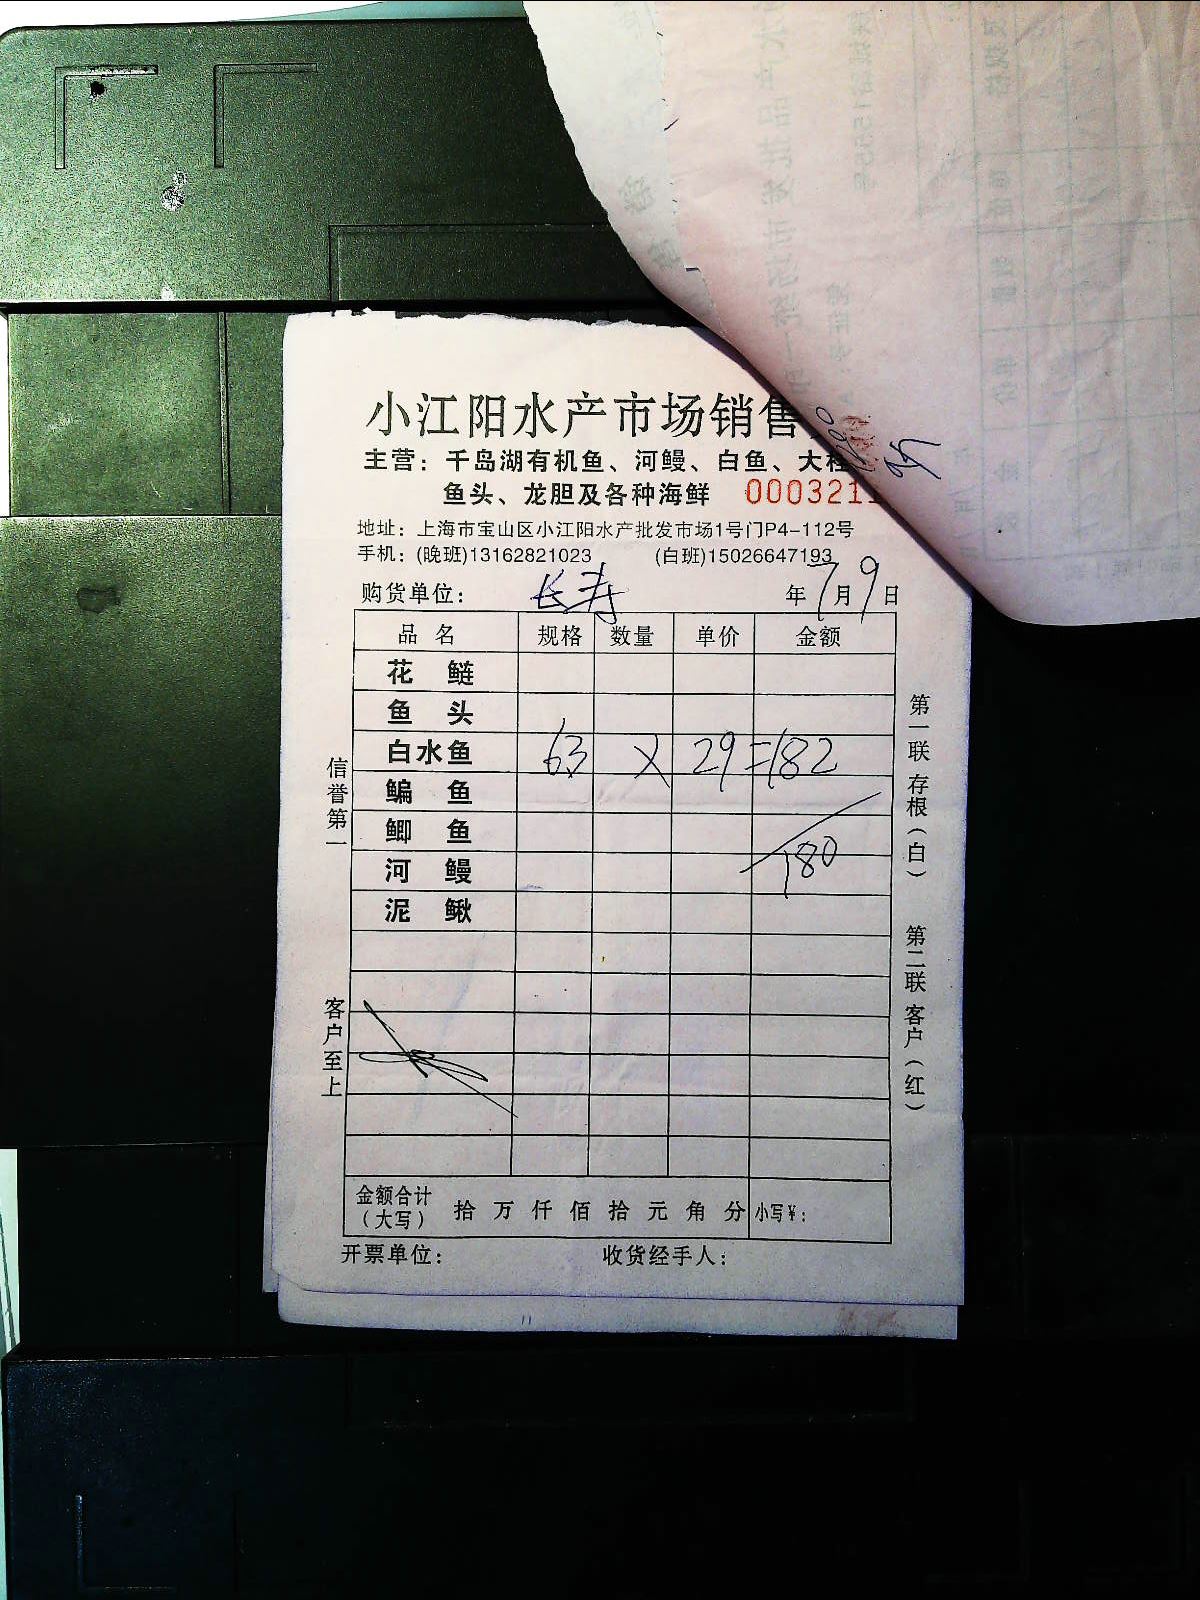 小江阳水产市场销售
主营：千岛湖有机鱼、河鳗、白鱼、大桂
鱼头、龙胆及各种海鲜 0003211
地址：上海市宝山区小江阳水产批发市场1号门P4-112号
手机：(晚班)13162821023 (白班)15026647193
购货单位： 长寿 年 7 月 9 日
品 名 规格 数量 单价 金额
花 鲢
鱼 头
白水鱼 63 × 29 =182
鳊 鱼
鲫 鱼 180
河 鳗
泥 鳅
金额合计
（大写） 拾 万 仟 佰 拾 元 角 分 小写¥：
开票单位： 收货经手人：
信誉第一
客户至上
第一联 存根（白）
第二联 客户（红）